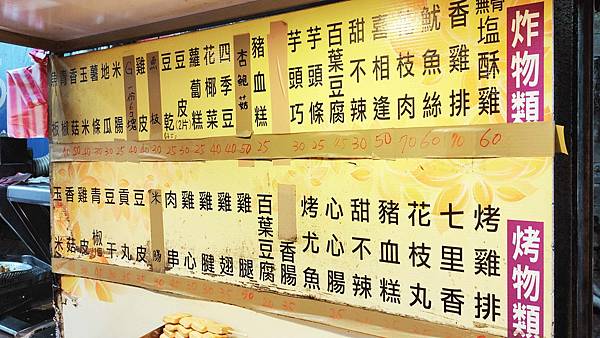 炸物類
無骨塩酥雞
香雞排
魷魚絲
花枝肉
喜相逢
甜不辣
百葉豆腐
芋頭條
芋頭巧
豬血糕
杏鮑菇
四季豆
花椰菜
蘿蔔糕
豆皮(2片)
豆乾
魚板
雞皮
米腸
地瓜
薯條
玉米
香菇
青椒
60 70 60 70 50 30 25 30 25 50 40 40
烤物類
烤雞排
七里香
花枝丸
豬血糕
甜不辣
心心腸
烤尤魚
香腸
百葉豆腐
雞腿
雞翅
雞腱
雞心
肉串
米腸
豆皮
貢丸
豆干
青椒
雞皮
香菇
玉米